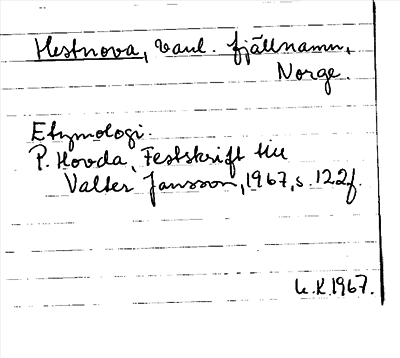 Hestnova, vanl. fjällnamn,
Norge.
Etymologi.
P. Hovda, Festskrift till
Valter Jansson, 1967, s. 122f.
U.K. 1967.